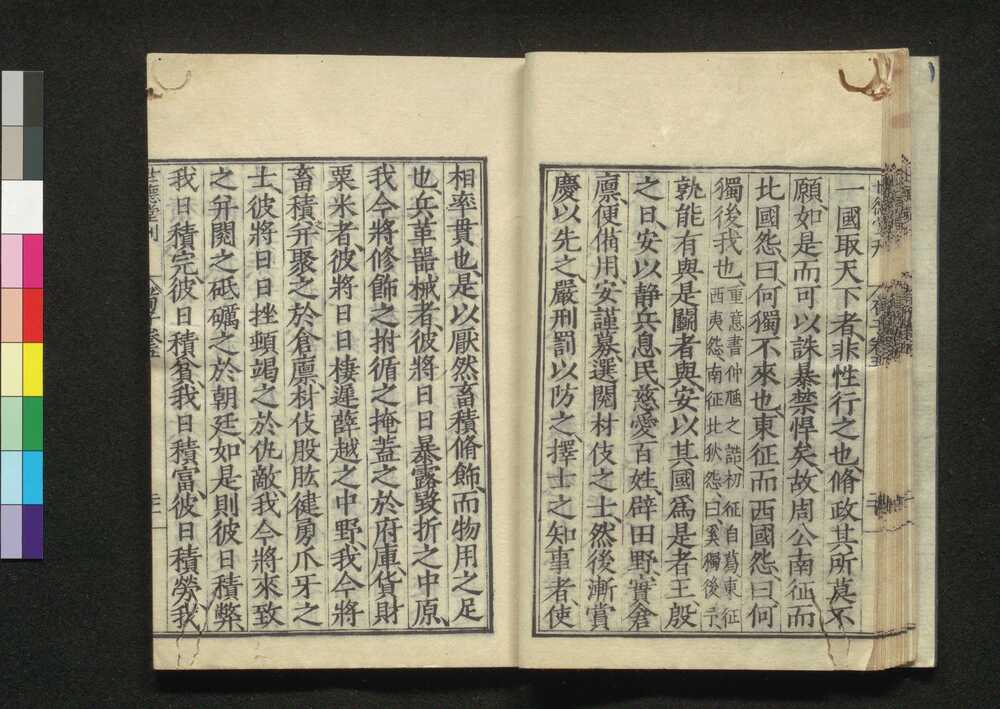 一國取天下者非性行之也脩政其所莫不
願如是而可以誅暴禁悍矣故周公南征而
北國怨曰何獨不來也東征而西國怨曰何
獨後我也重意書仲虺之誥初征自葛東征
西夷怨南征北狄怨曰奚獨後予
孰能有與是鬭者與安以其國爲是者王殷
之日安以静兵息民慈愛百姓辟田野實倉
廪便俻用安謹募選閱材伎之士然後漸賞
慶以先之嚴刑罰以防之擇士之知事者使
相率貫也是以厭然畜積脩飾而物用之足
也兵革器械者彼將日日暴露毀折之中原
我今將修飾之拊循之掩蓋之於府庫貨財
粟米者彼將日日棲遲薛越之中野我今將
畜積并聚之於倉廪材伎股肱健勇爪牙之
士彼將日日挫頓竭之於仇敵我今將來致
之并閱之砥礪之於朝廷如是則彼日積弊
我日積完彼日積貧我日積富彼日積勞我
世德堂刊